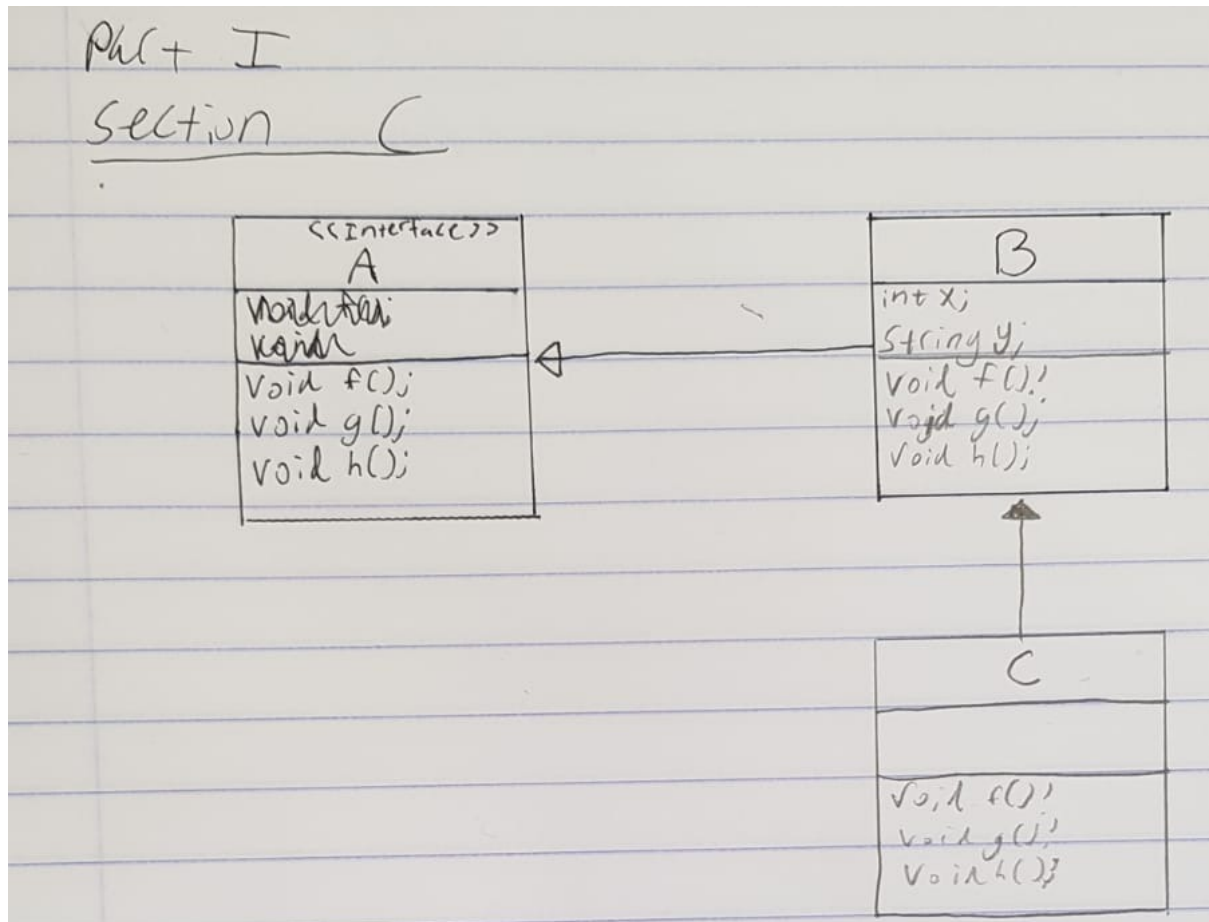 Part I
Section C
<<Interface>>
A
void f();
void g();
void h();
B
int x;
String y;
void f();
void g();
void h();
C
void f();
void g();
void h();